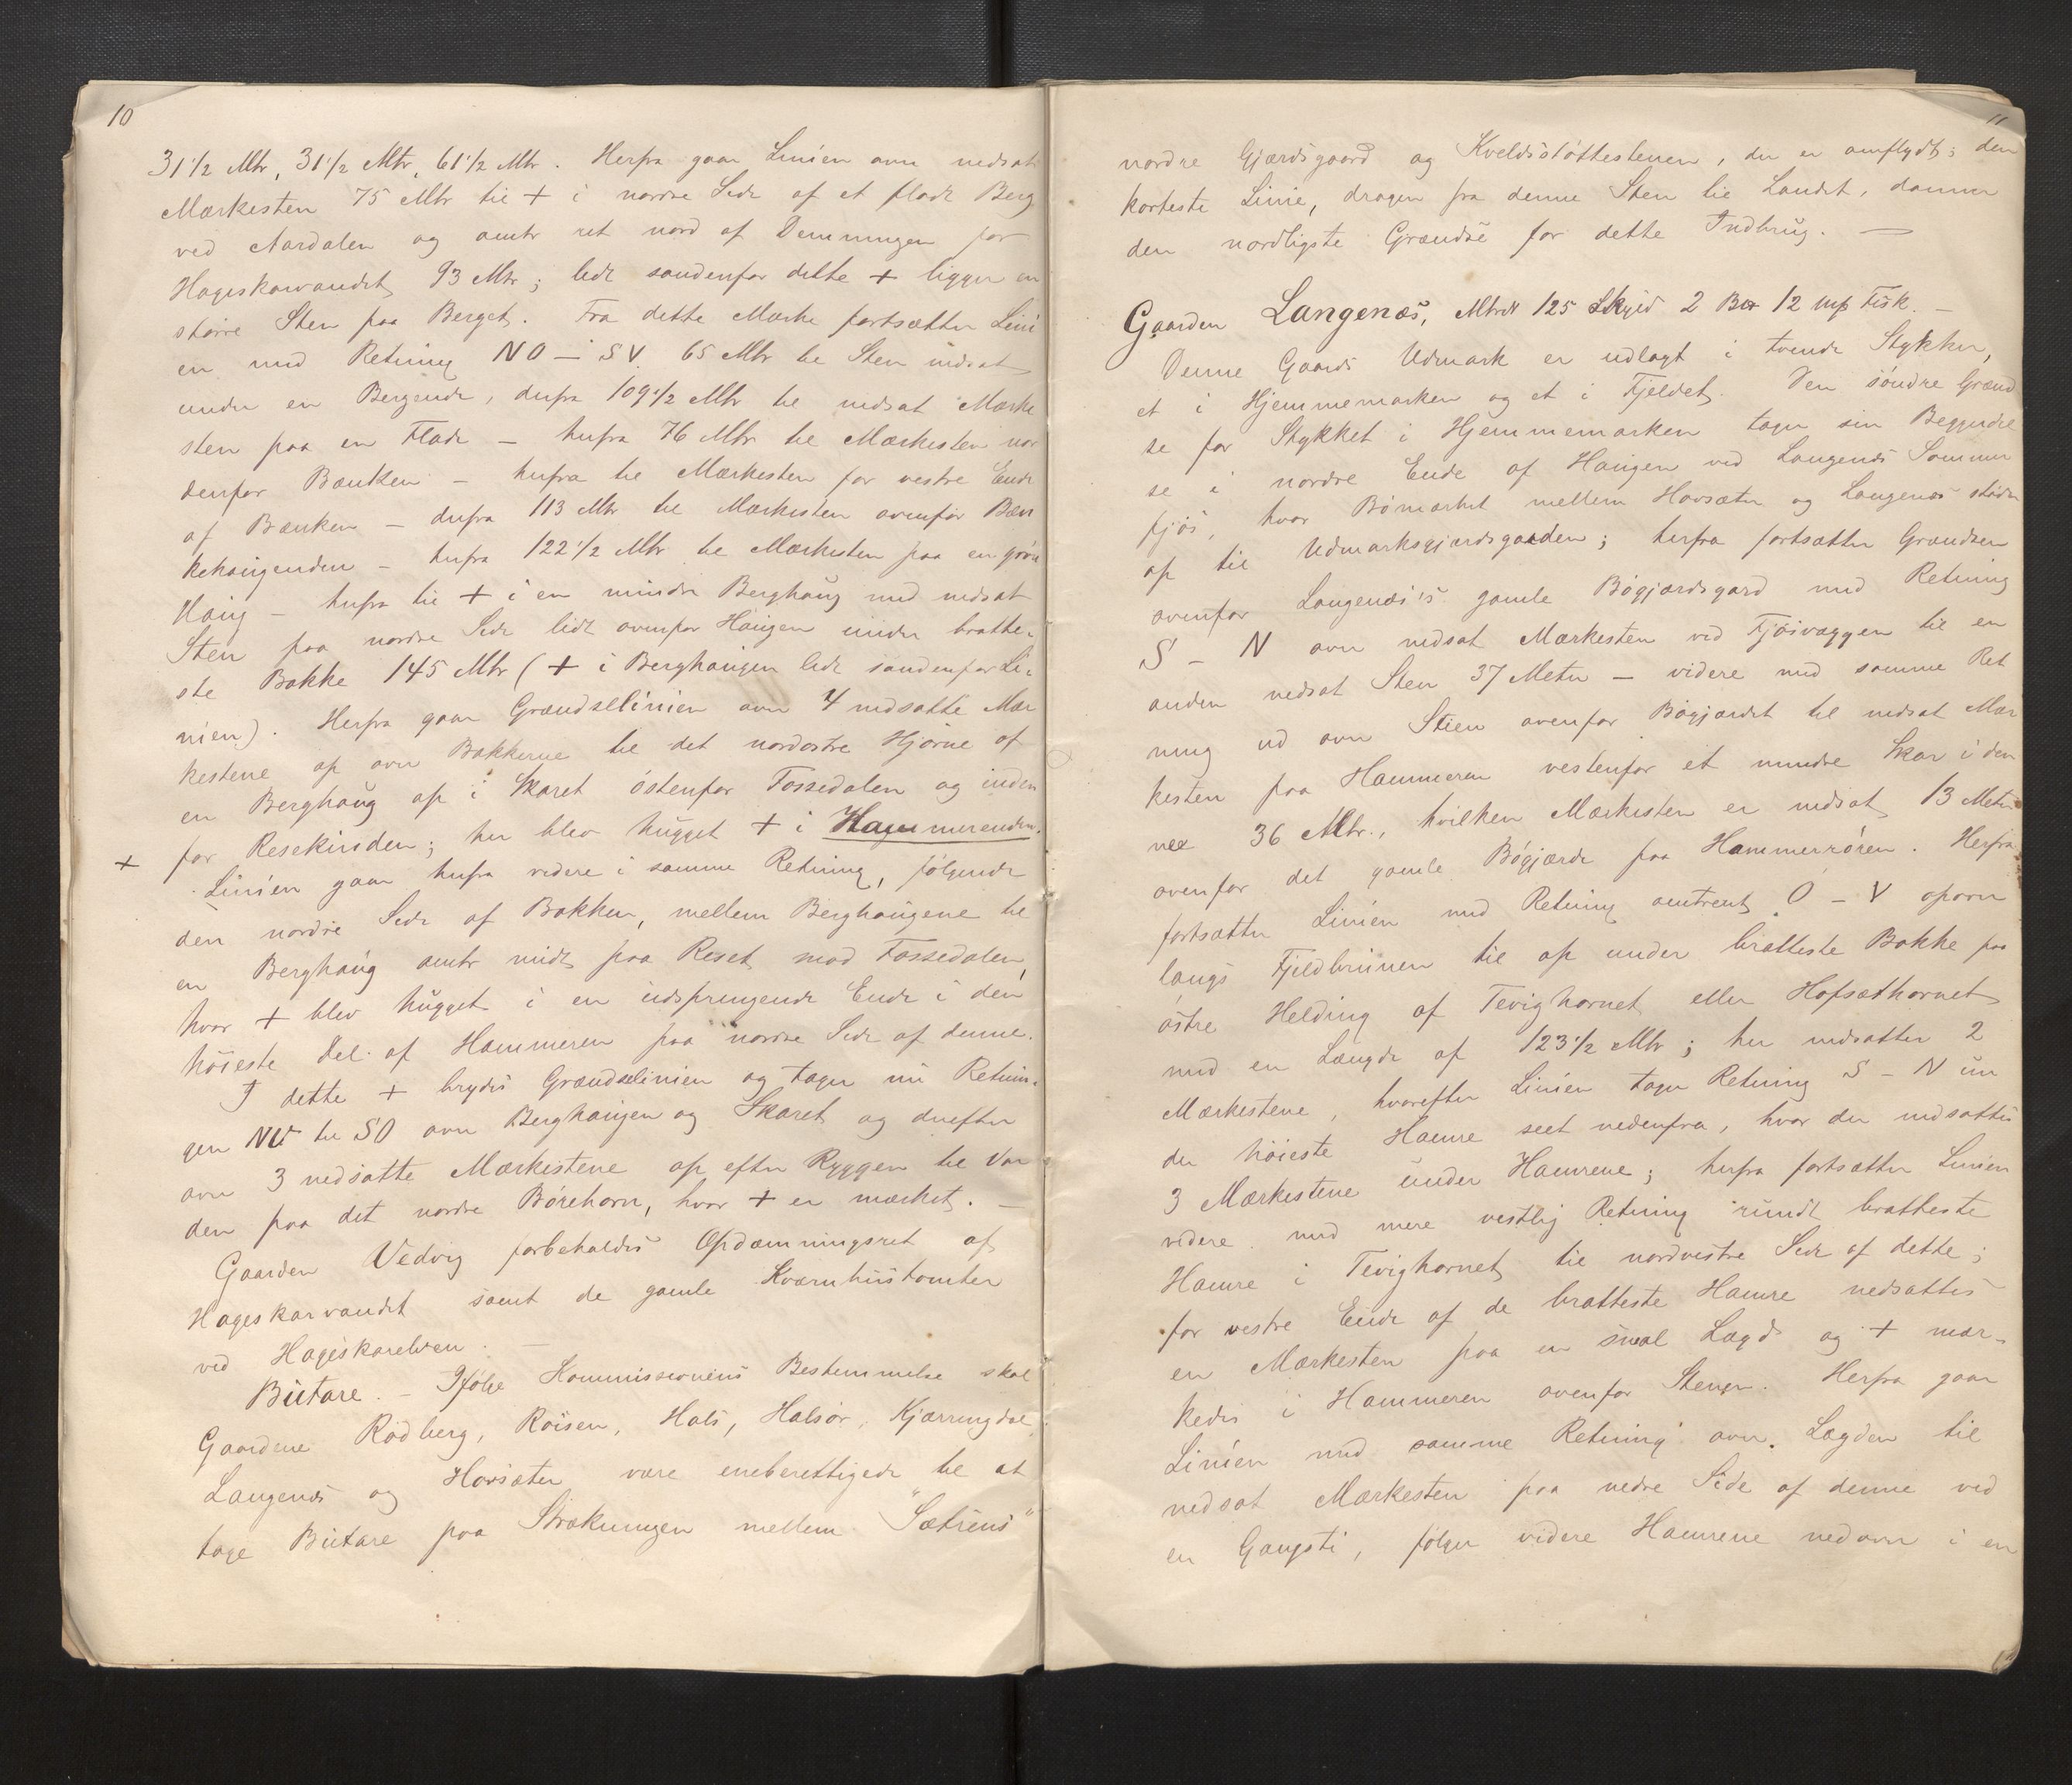 10
31 1/2 Mtr, 31 1/2 Mtr, 61 1/2 Mtr. Herfra gaar Linien over nedsat
Mærkesten 75 Mtr til + i nordre Side af et fladt Berg
ved Aardalen og omtr ret nord af Demningen for
Hageskarvandet 93 Mtr; lidt søndenfor dette + ligger en
større Sten paa Berget. Fra dette Mærke fortsætter Lini
en med Retning NO – SV 65 Mtr til Sten nedsat
under en Bergende, derfra 109 1/2 Mtr til nedsat Mærke
sten paa en Flade – herfra 76 Mtr til Mærkesten nor
denfor Bænken – herfra til Mærkesten for vestre Ende
af Bænken – derfra 113 Mtr til Mærkesten ovenfor Bæn
kehaugenden – herfra 122 1/2 Mtr til Mærkesten paa en grøn
Haug – herfra til + i en mindre Berghaug med nedsat
Sten paa nordre Side lidt ovenfor Haugen under bratte-
ste Bakke 145 Mtr (+ i Berghaugen lidt søndenfor Li-
nien). Herfra gaar Grændselinien over 4 nedsatte Mær
kestene op over Bakkerne til det nordostre Hjørne af
en Berghaug op i Skaret østenfor Fossedalen og inden
+ for Resekinden; her blev hugget + i Hammerenden.
Linien gaar herfra videre i samme Retning, følgende
den nordre Side af Bakken, mellem Berghaugene til
en Berghaug omtr midt paa Reset mod Fossedalen,
hvor + blev hugget i en udspringende Ende i den
høieste Del af Hammeren paa nordre Side af denne.
I dette + brydes Grændselinien og tager nu Retnin-
gen NV til SO over Berghaugen og Skaret og derefter
over 3 nedsatte Mærkestene op efter Ryggen til Var
den paa det nordre Börehorn, hvor + er mærket. –
Gaarden Vedvig forbeholdes Opdæmningsret af
Hageskarvandet samt de gamle Kværnhustomter
ved Hageskarelven. –
Butare. – Ifølge Kommissionens Bestemmelse skal
Gaardene Rødberg, Røisen, Hals, Halsør, Kjærringdal,
Langenæs og Hovsæter være eneberettigede til at
tage Butare paa Strækningen mellem "Sætrens"
11
nordre Gjærdsgaard og Kveldsstøttestenen, der er omflydt; den
korteste Linie, dragen fra denne Sten til Landet, danner
den nordligste Grændse for dette Indbrug. –
Gaarden Langenæs, Mtr№ 125 Skyld 2 12 Fisk. –
Denne Gaards Udmark er udlagt i tvende Stykker,
et i Hjemmemarken og et i Fjeldet. Den søndre Grænd
se for Stykket i Hjemmemarken tager sin Begyndel
se i nordre Ende af Haugen ved Langenæs Sommer
fjøs, hvor Bömærket mellem Hovsæter og Langenæs støder
op til Udmarksgjærdsgaarden; herfra fortsætter Grændsen
ovenfor Langenæs's gamle Bøgjærdsgard med Retning
S – N over nedsat Mærkesten ved Fjøsvæggen til en
anden nedsat Sten 37 Meter – videre med samme Ret
ning ud over Stien ovenfor Bøgjærdet til nedsat Mær
kesten paa Hammeren vestenfor et mindre Skar i den
nee 36 Mtr., hvilken Mærkesten er nedsat 13 Meter
ovenfor det gamle Bøgjærde paa Hammerrøren. Herfra
fortsætter Linien med Retning omtrent O – V opover
langs Fjeldbrunen til op under bratteste Bakke paa
østre Helding af Tevighornet eller Hofsæthornet
med en Længde af 123 1/2 Mtr; her nedsattes 2
Mærkestene, hvorefter Linien tager Retning S – N un
der høieste Hamre seet nedenfra, hvor der nedsattes
3 Mærkestene under Hamrene; herfra fortsætter Linien
videre med mere vestlig Retning rundt bratteste
Hamre i Tevighornet til nordvestre Side af dette;
for vestre Ende af de bratteste Hamre nedsattes
en Mærkesten paa en smal Lægd og + mær-
kedes i Hammeren ovenfor Stenen. Herfra gaar
Linien med samme Retning over Lægden til
nedsat Mærkesten paa nedre Side af denne ved
en Gangsti, følger videre Hamrene nedover i en